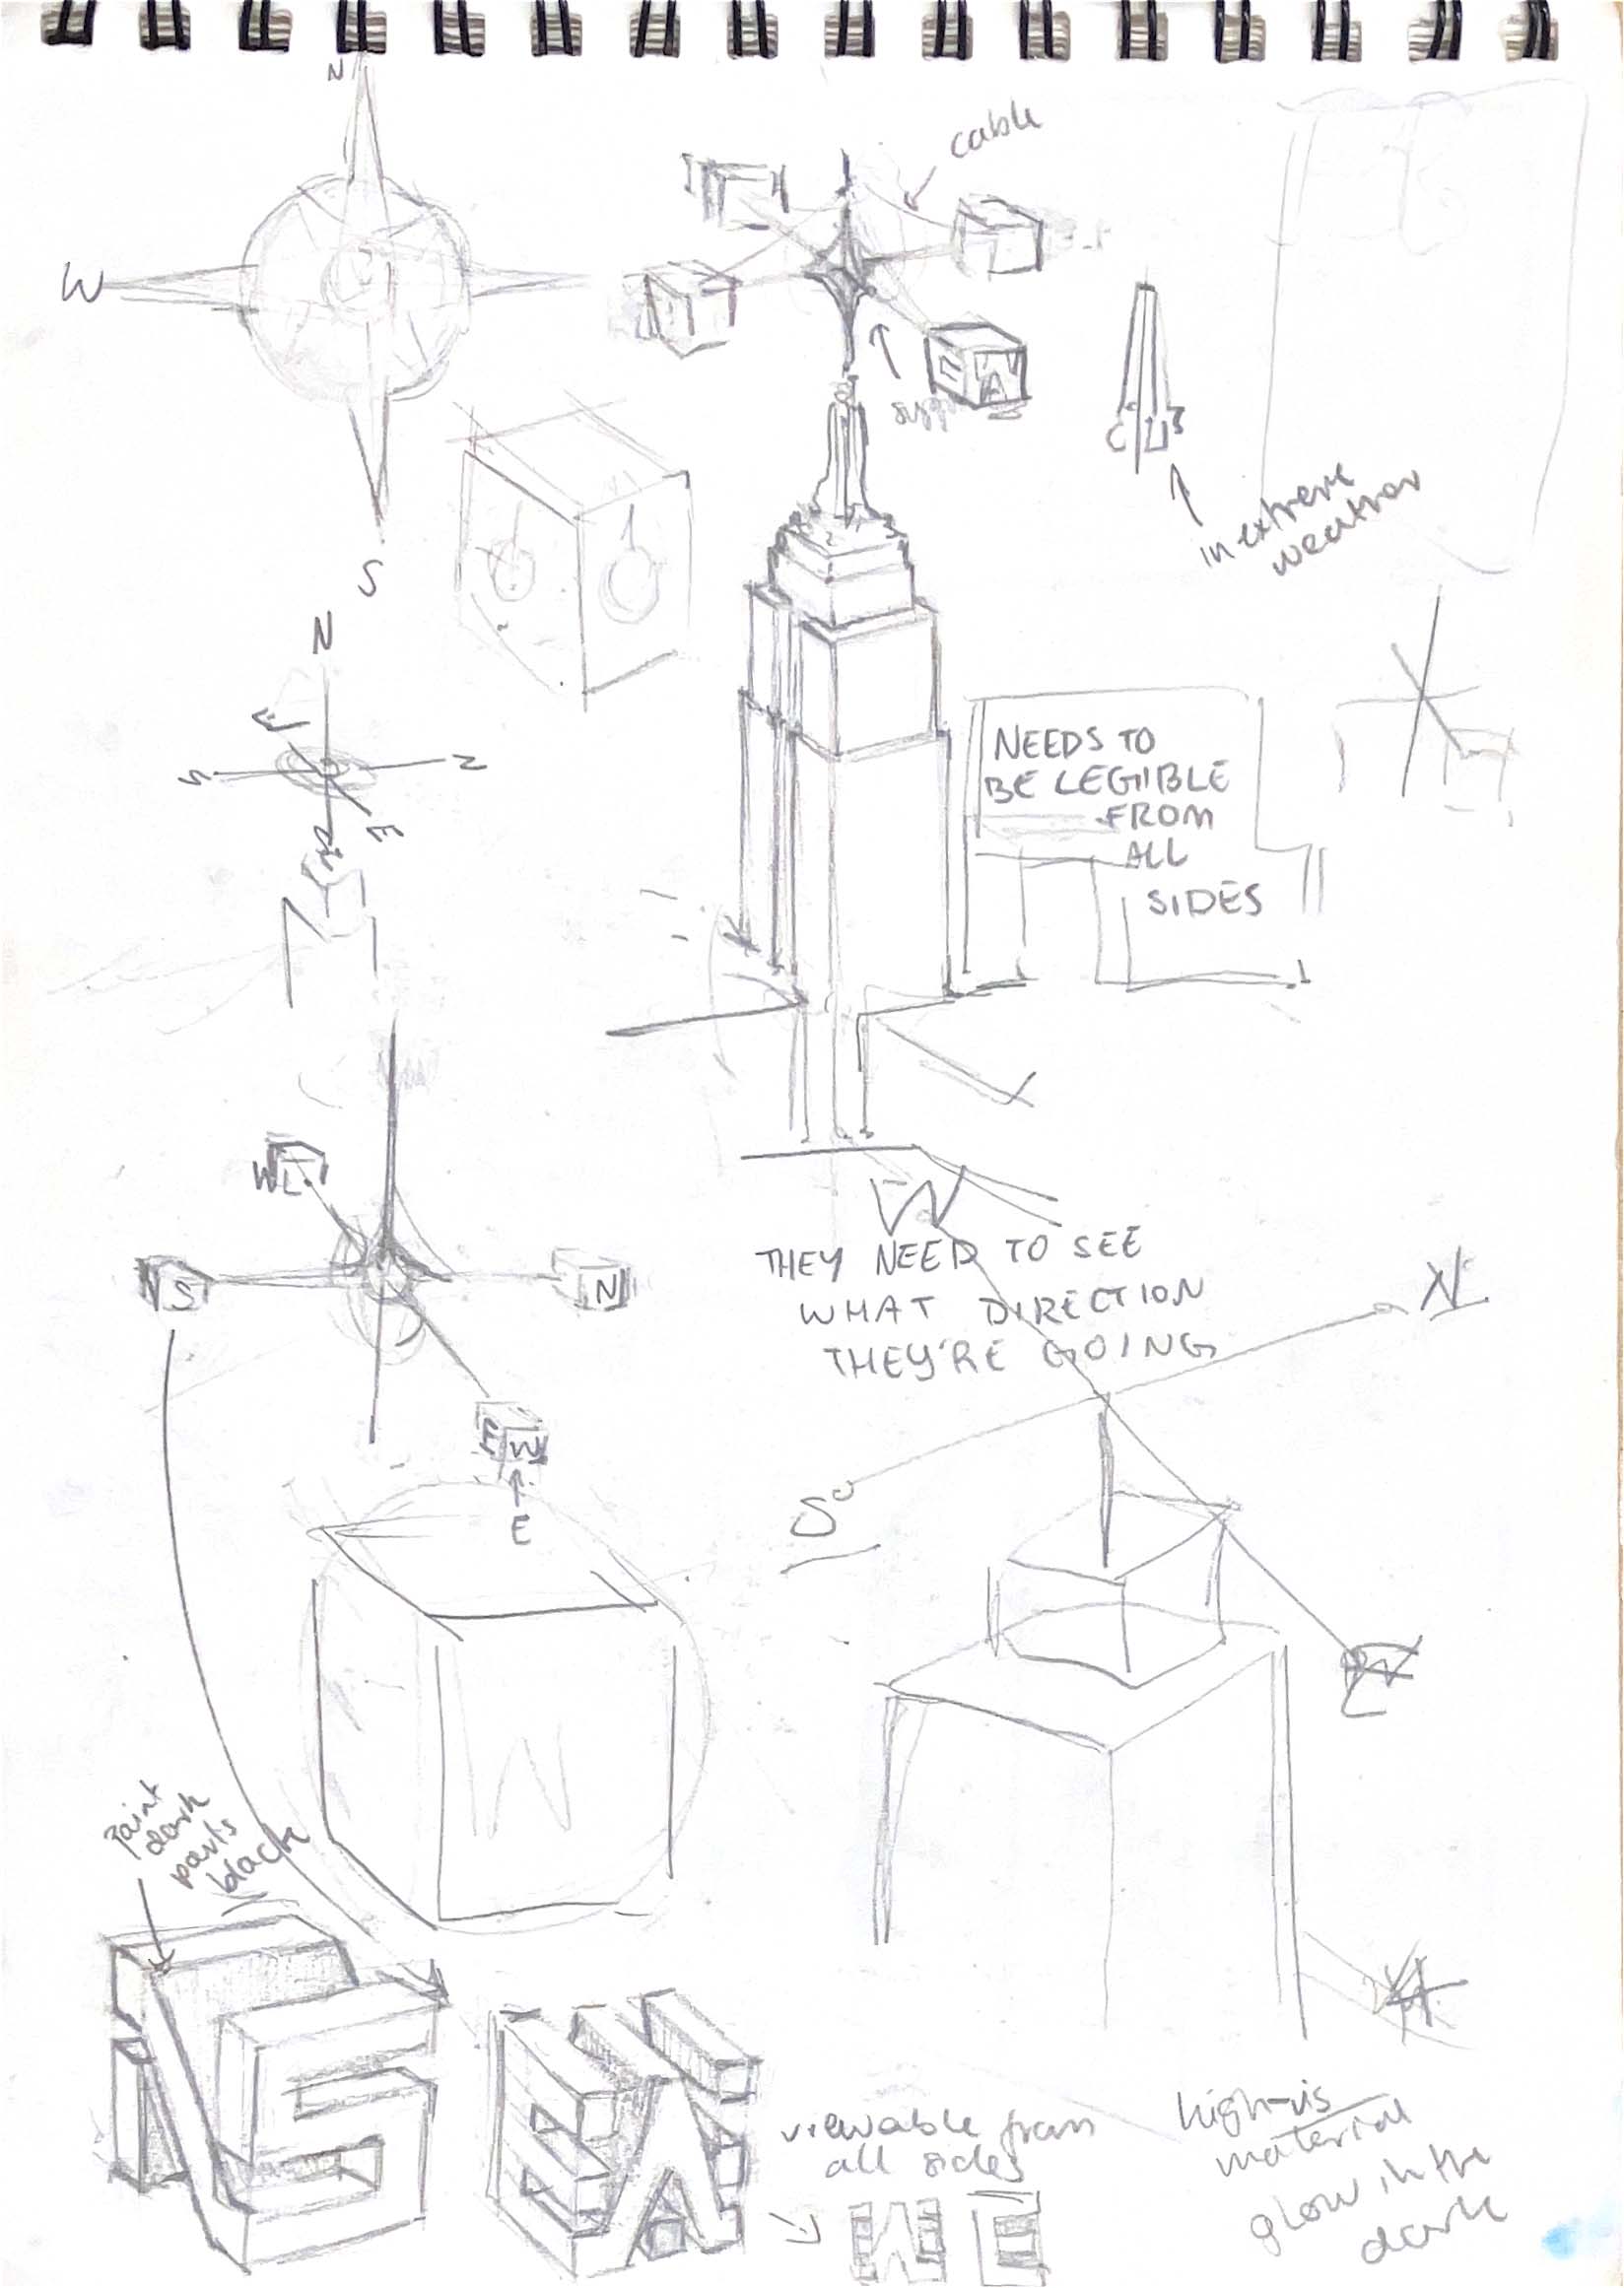 N
cable
W
in extreme
weather
S
N
E
S
N
E
NEEDS TO
BE LEGIBLE
FROM
ALL
SIDES
W
W
THEY NEED TO SEE
WHAT DIRECTION
THEY'RE GOING
N
S
N
E
W
E
S
W
paint
dark
parts
black
N
S
E
W
viewable from
all sides
W E
high-vis
material
glow in the
dark